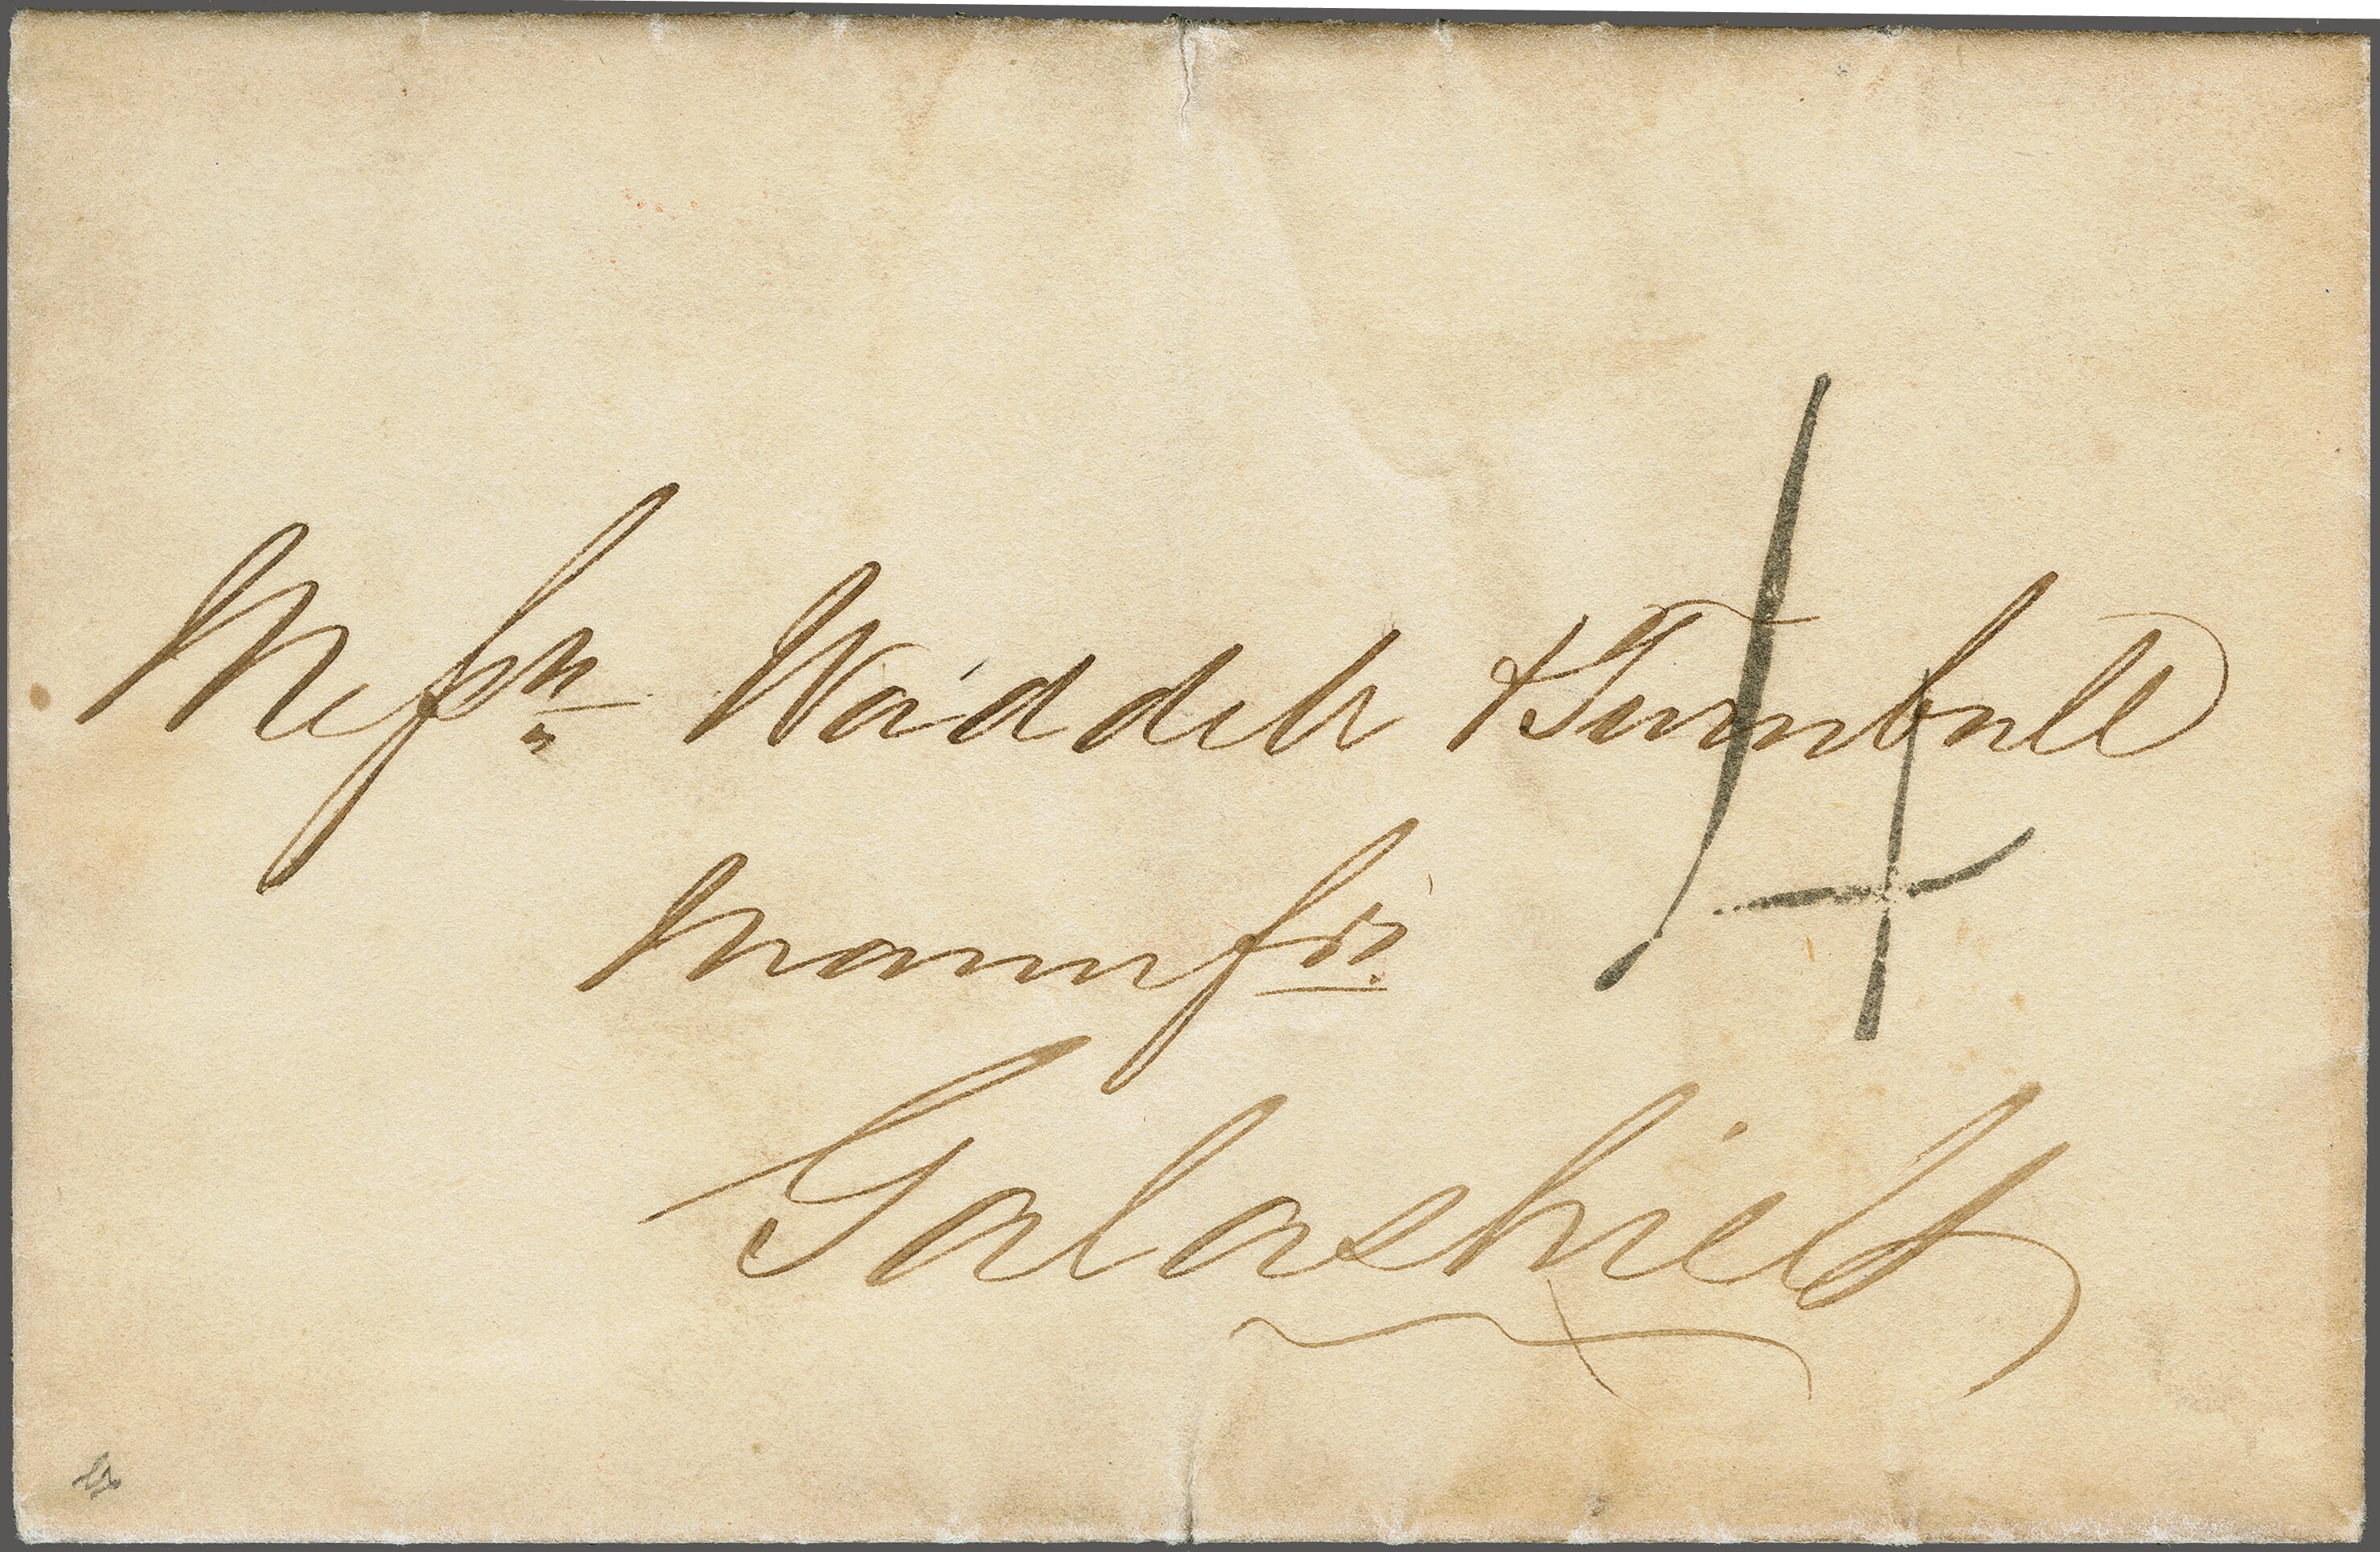 Messrs Waddell & Turnbull
4
Manufrs
Galashiels